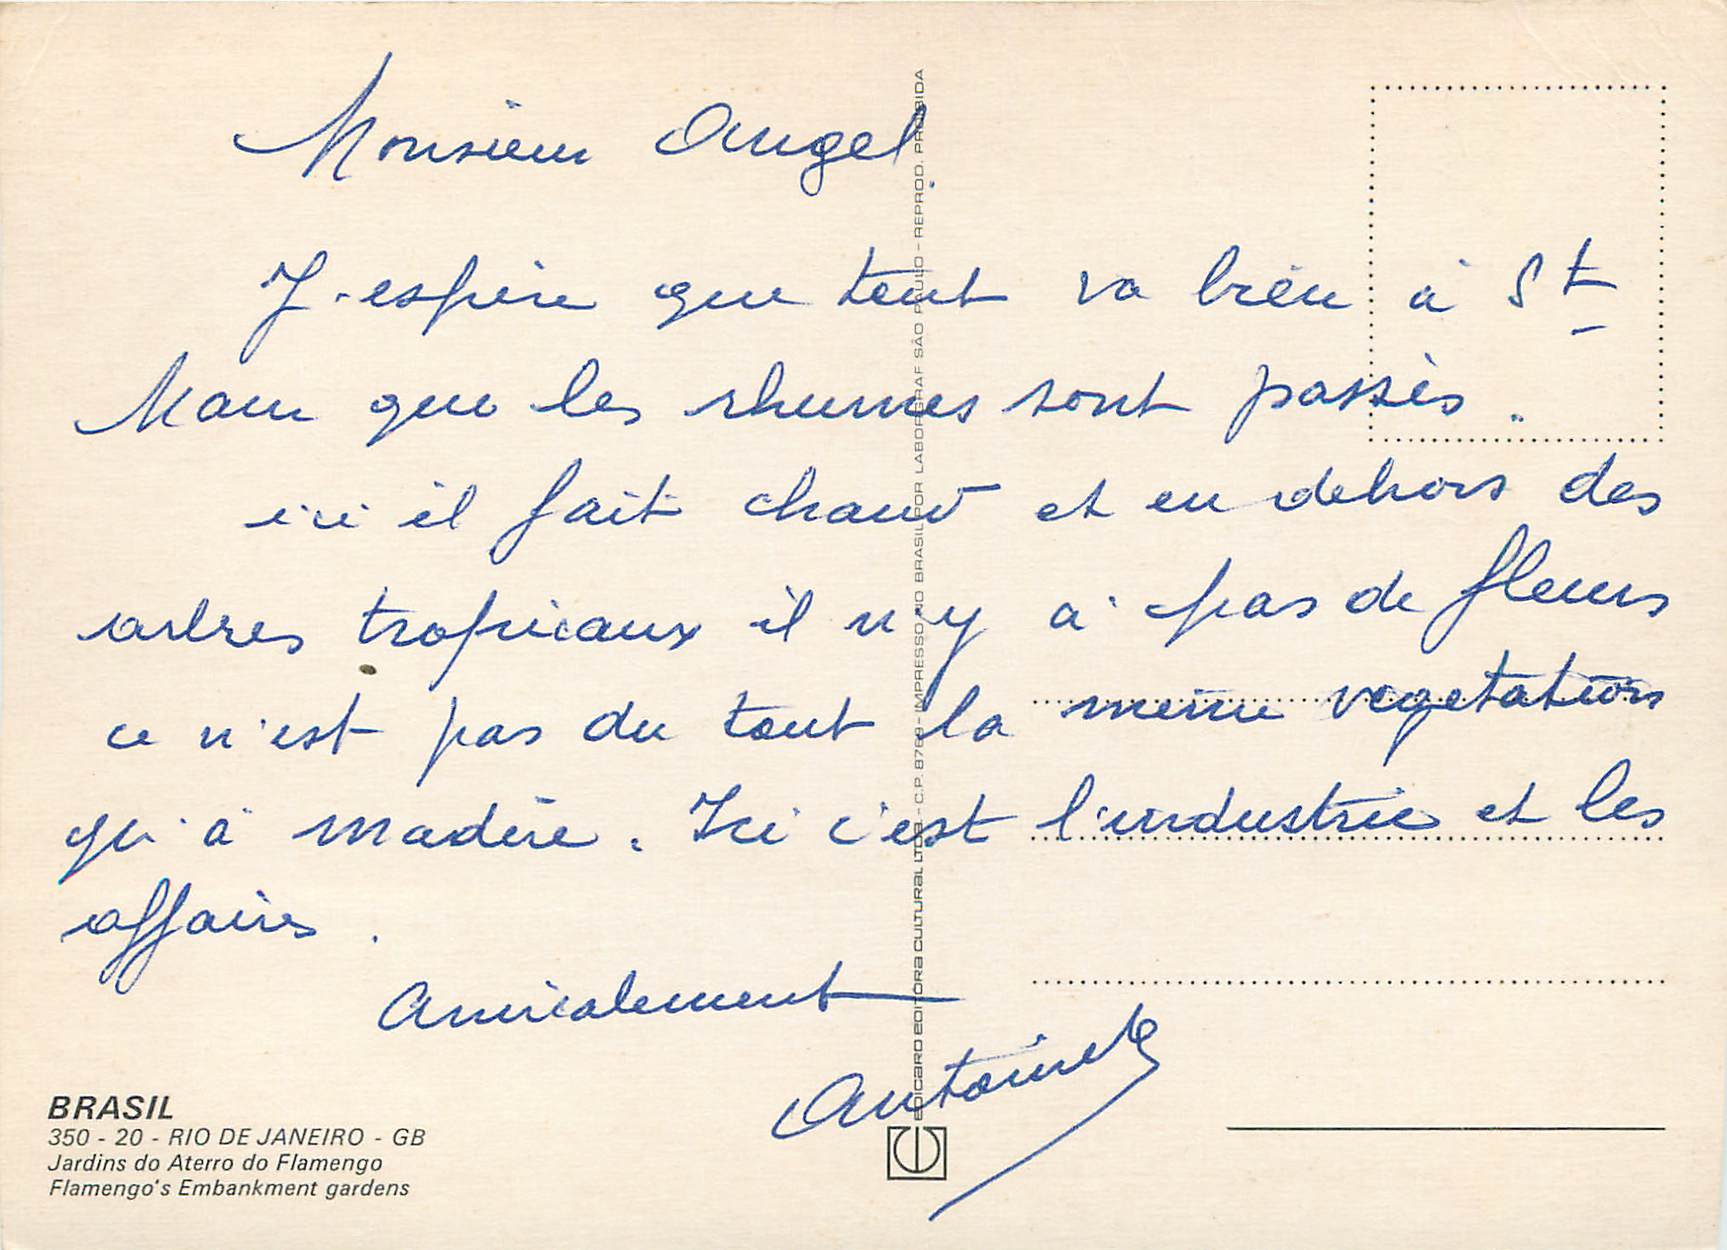 Monsieur Angel.
J'espère que tout va bien à St
Maur que les rhumes sont passés.
ici il fait chaud et en dehors des
arbres tropicaux il n'y a pas de fleurs
ce n'est pas du tout la même vegetation
qu'à madère. Ici c'est l'industrie et les
affaires.
Amicalement
Antoinette
BRASIL
350 - 20 - RIO DE JANEIRO - GB
Jardins do Aterro do Flamengo
Flamengo's Embankment gardens
EDICARD EDITORA CULTURAL LTDA - C.P. 8769 - IMPRESSO NO BRASIL POR LABORGRAF SÃO PAULO - REPROD. PROIBIDA